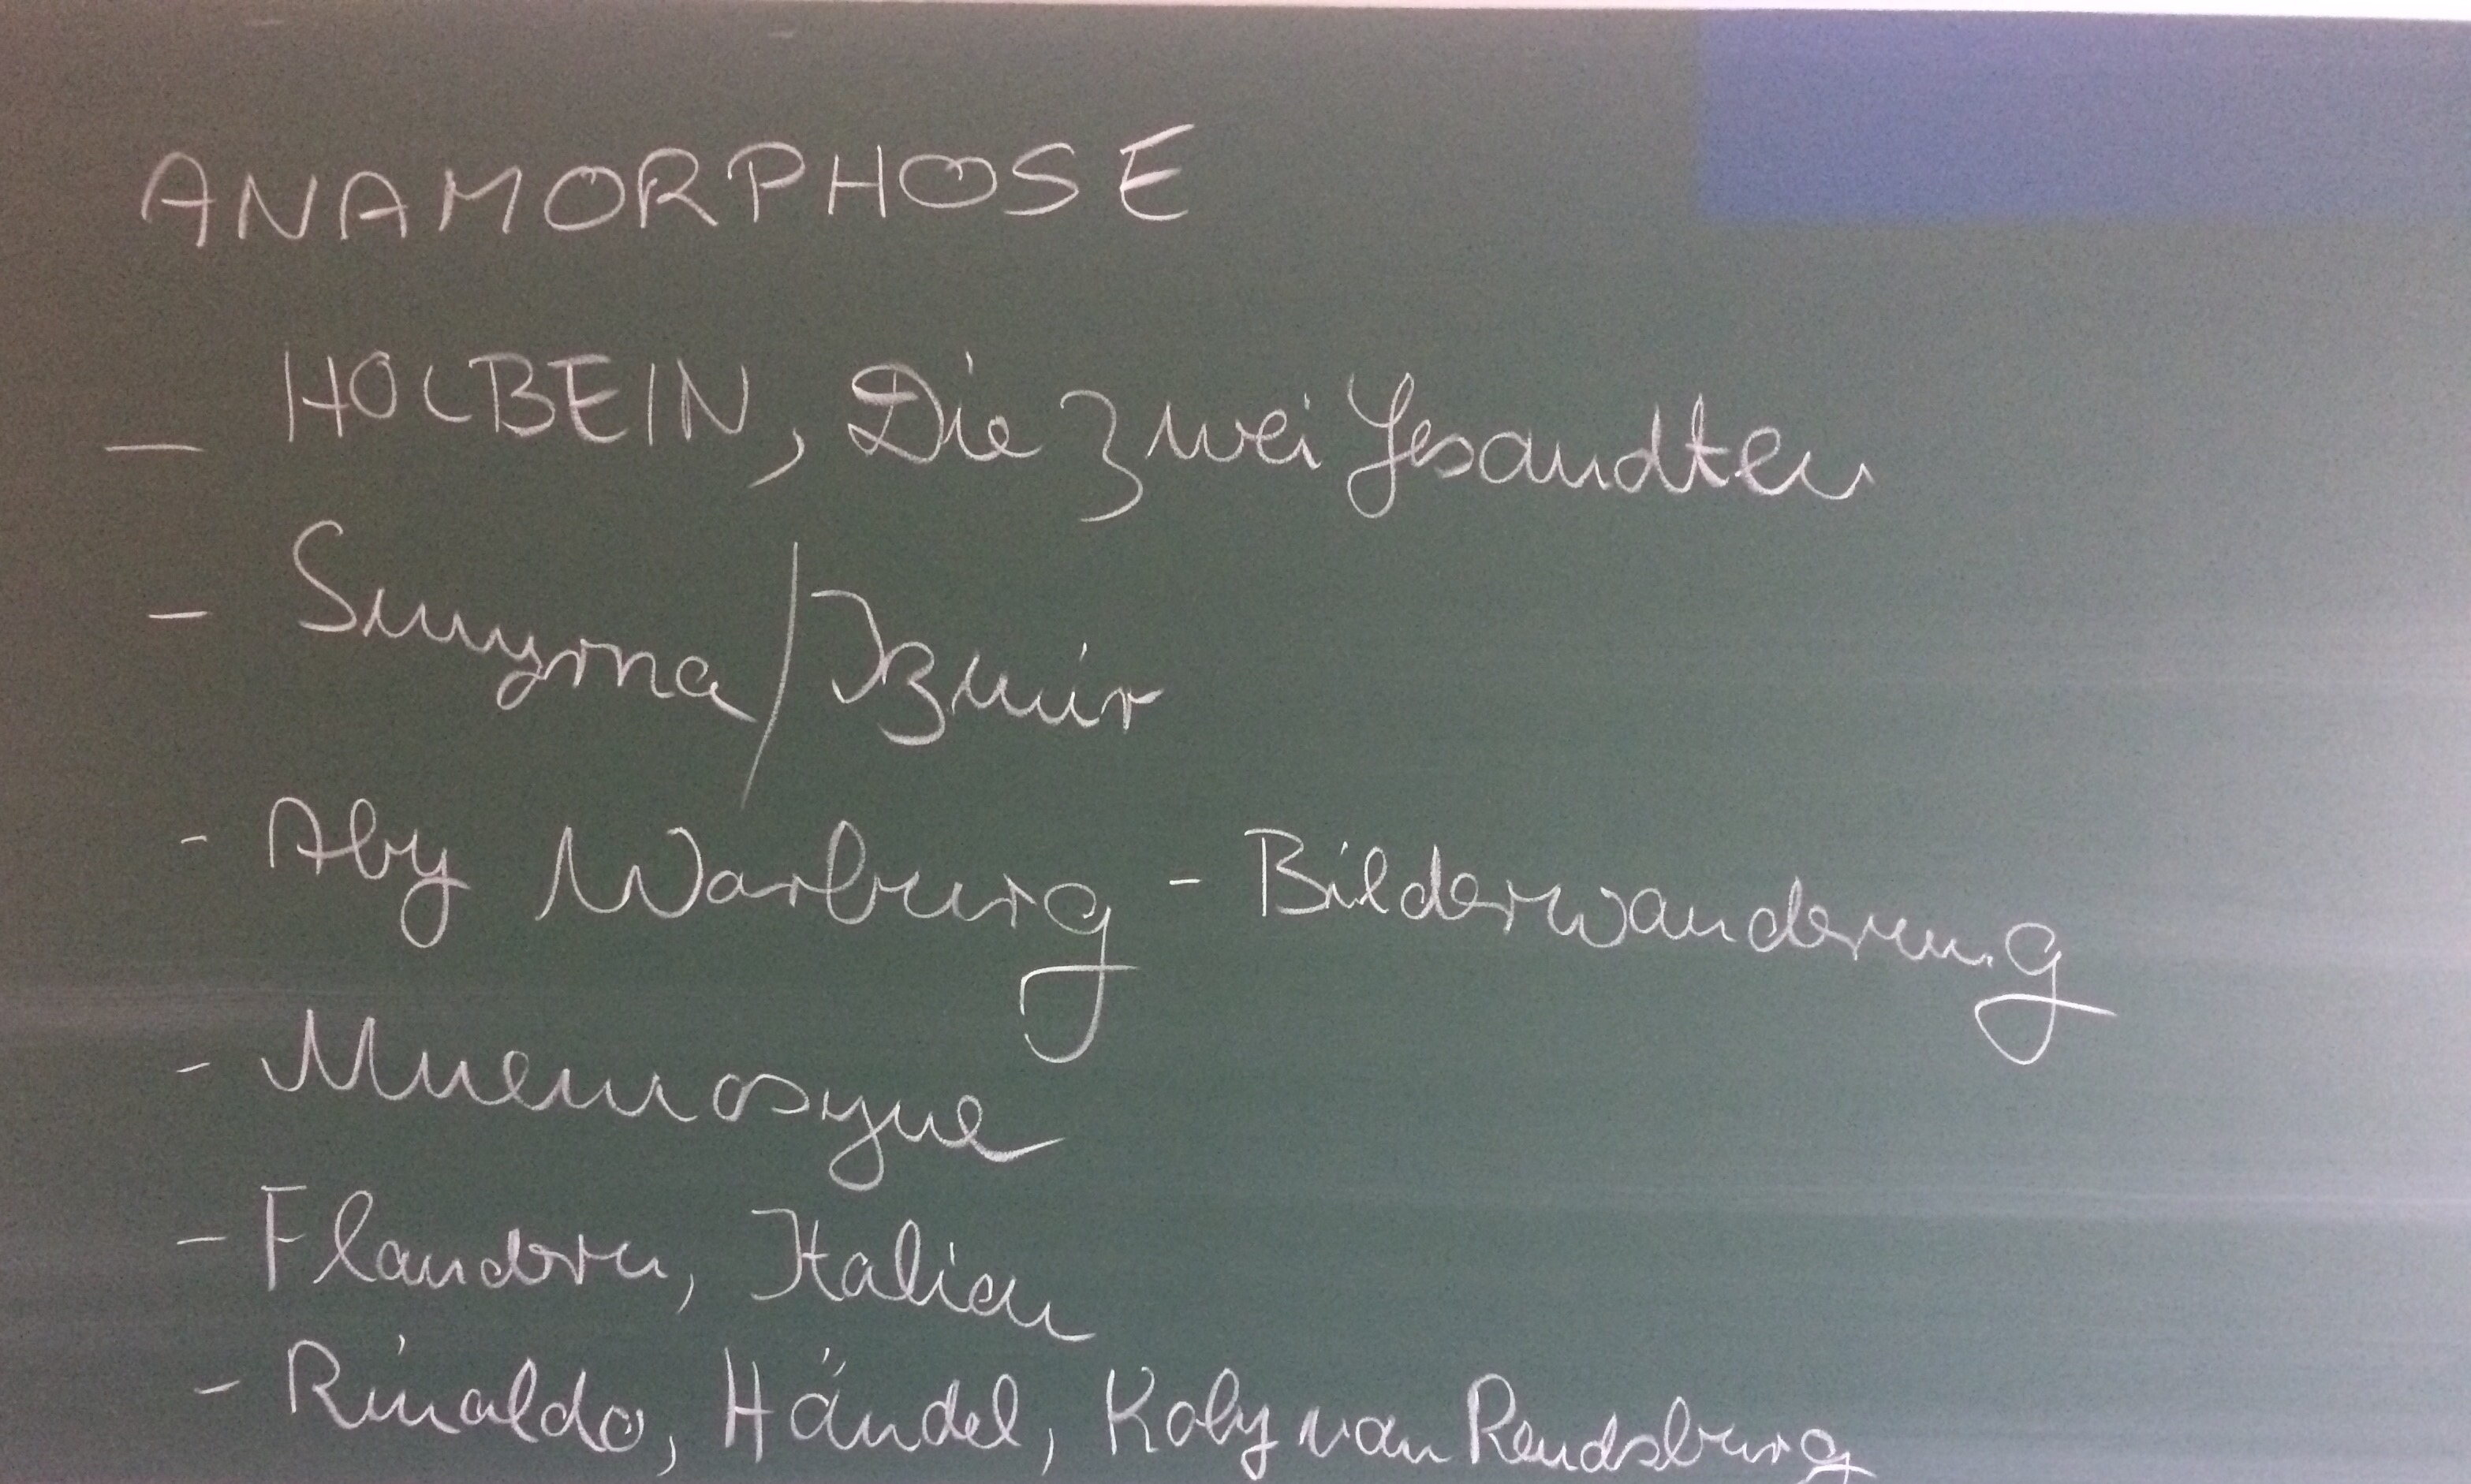 ANAMORPHOSE
- HOLBEIN, Die zwei Gesandten
- Smyrna/Izmir
- Aby Warburg - Bilderwanderung
- Mnemosyne
- Flandern, Italien
- Rinaldo, Händel, Koby van Rendsburg